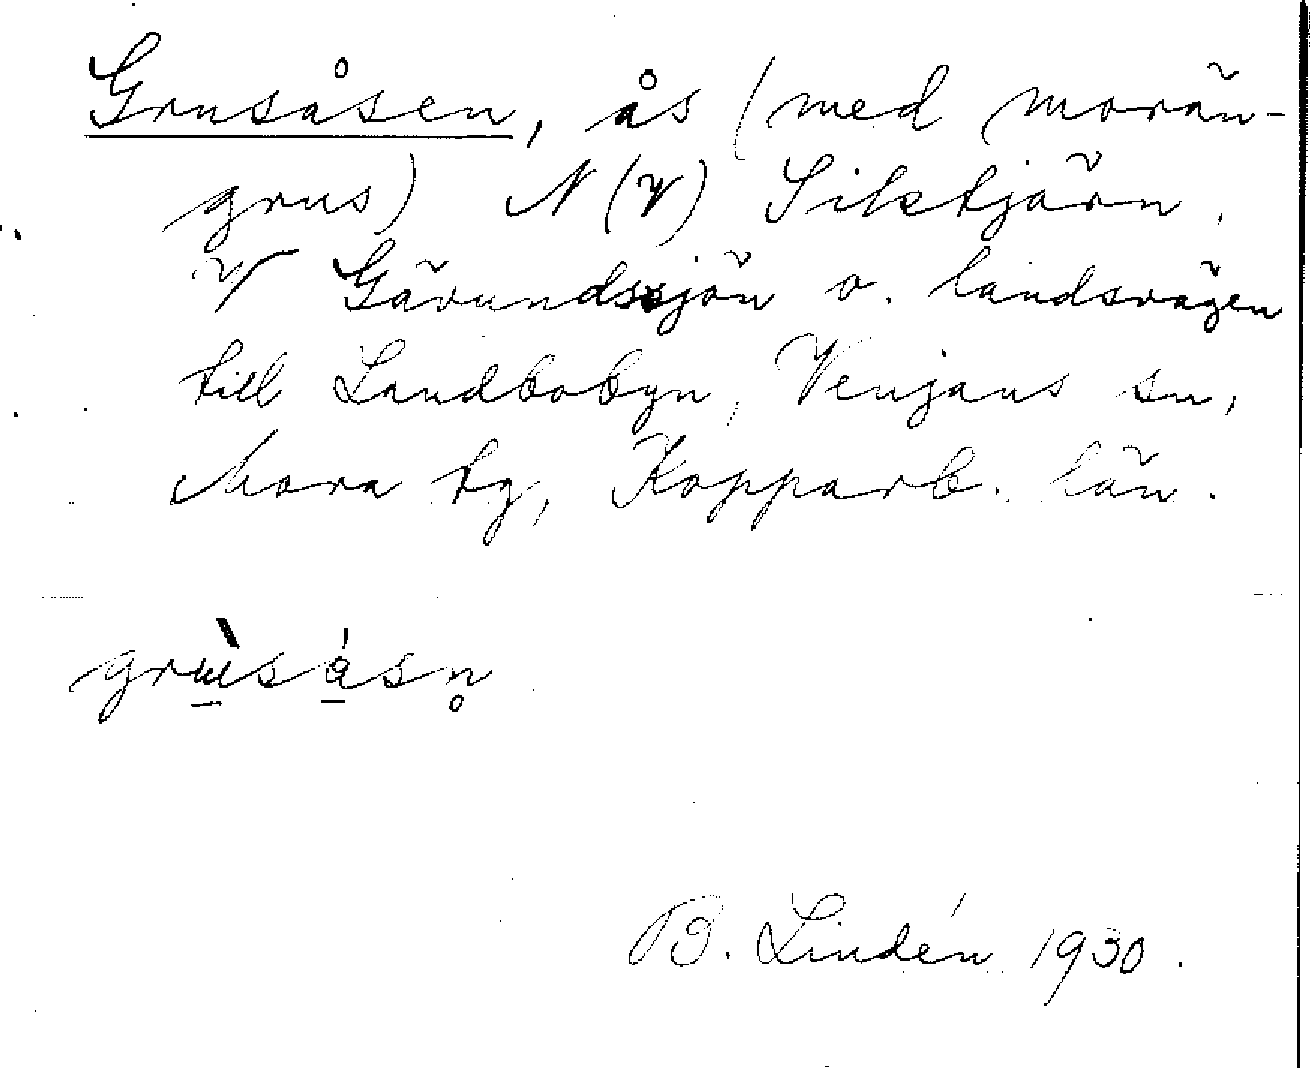 Grusåsen, ås (med morän-
grus) N(V) Siktjärn,
V Gävundssjön o. landsvägen
till Landbobyn, Venjans sn,
Mora tg, Kopparb. län.
B. Lindén 1930.